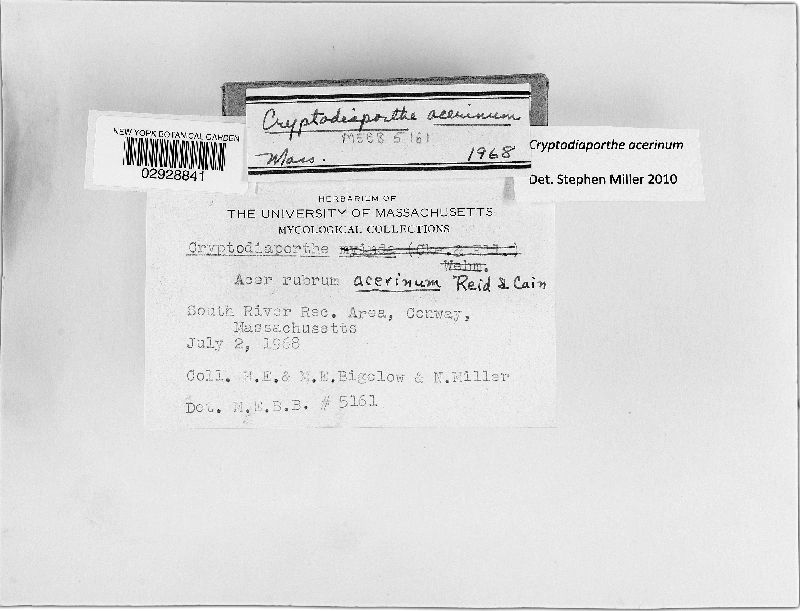 Cryptodiaporthe acerinum
MEBB 5161
Mass. 1968
NEW YORK BOTANICAL GARDEN
02928841
Cryptodiaporthe acerinum
Det. Stephen Miller 2010
HERBARIUM OF
THE UNIVERSITY OF MASSACHUSETTS
MYCOLOGICAL COLLECTIONS
Cryptodiaporthe
Wehm.
Acer rubrum acerinum Reid & Cain
South River Rec. Area, Conway,
Massachusetts
July 2, 1968
Coll. & M.E.Bigelow & N.Miller
Det. M.E.B.B. # 5161